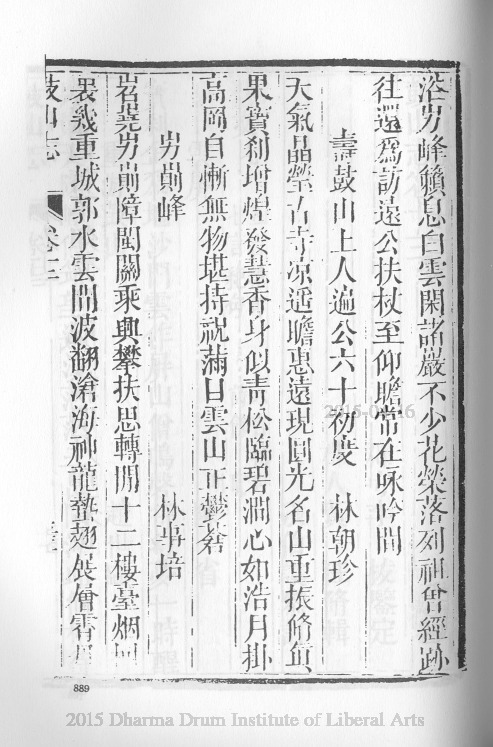 岊峰籟息白雲閑諸巖不少花榮落列祖曾經跡
往還為訪遠公扶杖至仰瞻常在咏吟間
壽鼓山上人遍公六十初度 林朝珍
天氣晶瑩古寺凉遥瞻惠遠現圓光名山重振脩
果寶刹增煌發慧香身似青松臨碧澗心如浩月掛
高岡自慚無物堪持祝滿目雲山正鬱蒼
屴崱峰 林事培
岧嶤屴崱障閩關乘興攀扶思轉閒十二樓臺烟
幾重城郭水雲間波翻滄海神龍蟄翅展層霄
鼓山志 卷十二
889
2015 Dharma Drum Institute of Liberal Arts